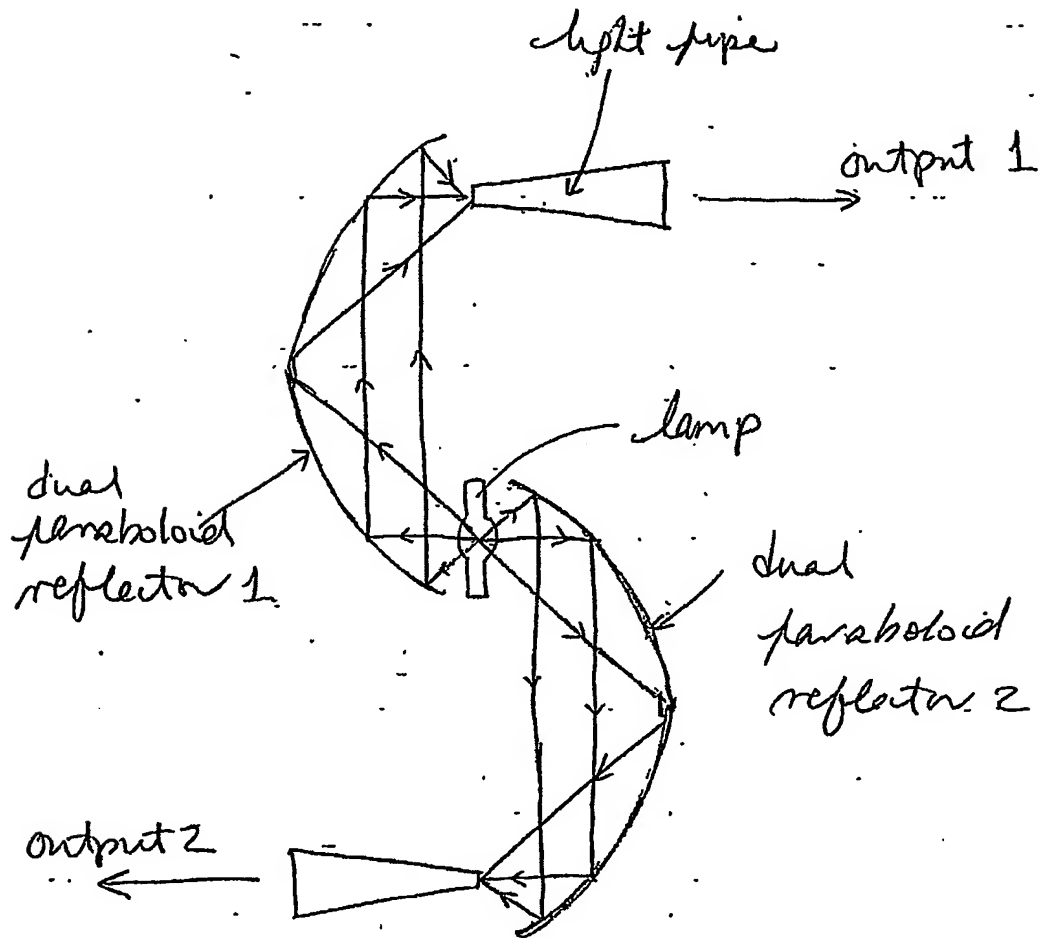 light pipe
output 1
lamp
dual
paraboloid
reflector 1
dual
paraboloid
reflector 2
output 2